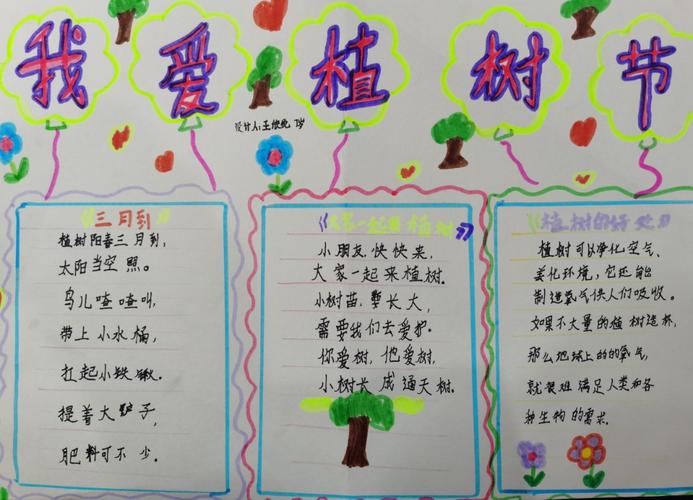 我爱植树节
设计人:王 7岁
《三月到》
植树阳春三月到,
太阳当空照。
鸟儿喳喳叫,
带上小水桶,
扛起小铁锹。
提着大铲子,
肥料可不少。
《大家一起来植树》
小朋友快快来,
大家一起来植树。
小树苗,要长大,
需要我们去爱护。
你爱树,他爱树,
小树长成通天树。
《植树的好处》
植树可以净化空气、
美化环境,它还能
制造氧气供人们吸收。
如果不大量的植树造林,
那么地球上的的氧气,
就很难满足人类和各
种生物的需求。